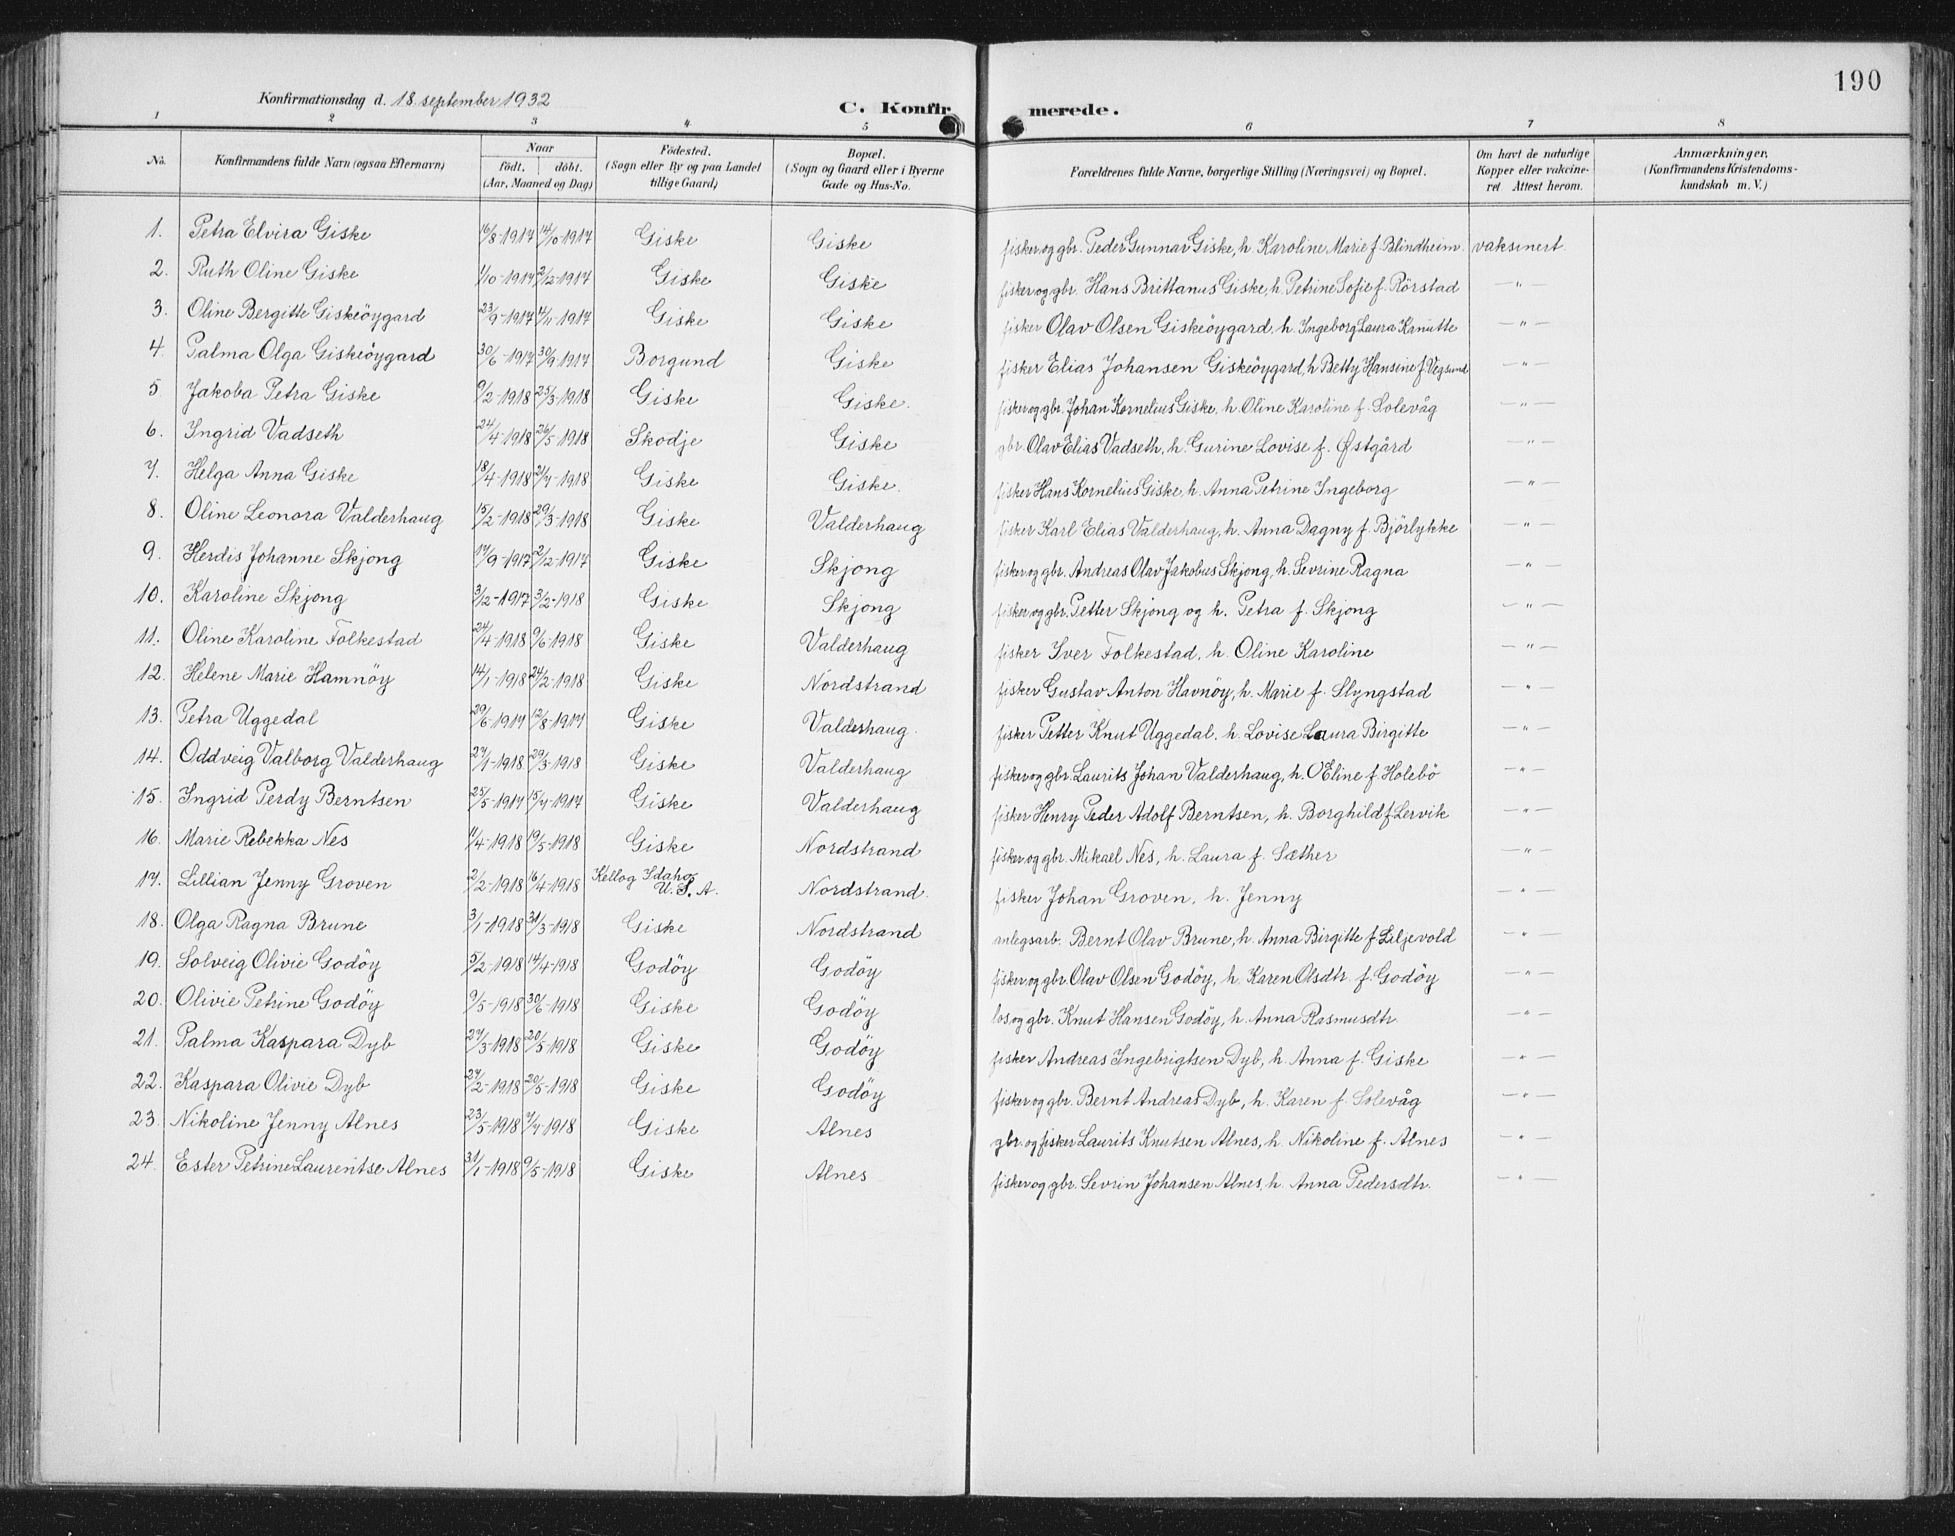 190
Konfirmationsdag d. 18 september 1932
C. Konfirmerede.
1 2 3 4 5 6 7 8
No. Konfirmandens fulde Navn (ogsaa Efternavn) Naar födt. döbt. (Aar, Maaned og Dag) Födested. (Sogn eller By og paa Landet tillige Gaard) Bopæl. (Sogn og Gaard eller i Byerne Gade og Hus-No. Forældrenes fulde Navne, borgerlige Stilling (Næringsvei) og Bopæl. Om havt de naturlige Kopper eller vakcineret Attest herom. Anmærkninger. (Konfirmandens Kristendomskundskab m. V.)
1. Petra Elvira Giske 16/8-1917 14/10-1917 Giske Giske fisker og gbr. Peder Gunnar Giske, h. Karoline Marie f. Blindheim. vaksinert.
2. Ruth Oline Giske 1/10-1917 2/12-1917 Giske Giske fisker og gbr. Hans Brittanus Giske, h. Petrine Sofie f. Rörstad —"—
3. Oline Bergitte Giskeöygard 23/9-1917 4/11-1917 Giske Giske fisker Olav Olsen Giskeöygard, h. Ingeborg Laura Knutte —"—
4. Palma Olga Giskeöygard 30/6-1917 30/9-1917 Borgund Giske fisker Elias Johansen Giskeöygard, h Betty Hansine f. Vegsund —"—
5 Jakoba Petra Giske 9/2-1918 25/3-1918 Giske Giske. fisker og gbr. Johan Kornelius Giske, h. Oline Karoline f. Solevåg —"—
6. Ingrid Vadseth 24/4-1918 26/5-1918 Skodje Giske gbr. Olav Elias Vadseth, h. Gurine Lovise f. Østgård —"—
7. Helga Anna Giske 18/4-1918 21/7-1918 Giske Giske. fisker Hans Kornelius Giske, h. Anna Petrine Ingeborg —"—
8. Oline Leonora Valderhaug 15/2-1918 29/3-1918 Giske Valderhaug fisker Karl Elias Valderhaug, h. Anna Dagny f. Björlykke —"—
9. Herdis Johanne Skjong 17/9-1917 2/12-1917 Giske Skjong fisker og gbr. Andreas Olav Jakobus Skjong, h. Sevrine Ragna —"—
10. Karoline Skjong 3/12-1917 3/2-1918 Giske Skjong fisker og gbr. Petter Skjong og h. Petra f. Skjong —"—
11. Oline Karoline Folkestad 24/4-1918 9/6-1918 Giske Valderhaug fisker Iver Folkestad, h. Oline Karoline —"—
12. Helene Marie Hamnöy 14/1-1918 24/2-1918 Giske Nordstrand fisker Gustav Anton Havnöy, h. Marie f. Slyngstad —"—
13. Petra Uggedal 29/6-1917 12/8-1917 Giske Valderhaug. fisker Petter Knut Uggedal, h. Lovise Laura Birgitte —"—
14. Oddveig Valborg Valderhaug 27/1-1918 29/3-1918 Giske Valderhaug fisker og gbr. Laurits Johan Valderhaug, h. O Eline f Holebö —"—
15. Ingrid Perdy Berntsen 25/5-1917 15/7-1917 Giske Valderhaug fisker Henry Peder Adolf Berntsen, h. Borghild f Lervik —"—
16. Marie Rebekka Nes 11/4-1918 19/5-1918 Giske Nordstrand fisker og gbr. Mikael Nes, h. Laura f. Sæther —"—
17. Lillian Jenny Groven 2/2-1918 16/4-1918 Kellog Idaho, U. S. A. Nordstrand. fisker Johan Groven, h. Jenny —"—
18. Olga Ragna Brune 3/1-1918 31/3-1918 Giske Nordstrand anlegsarb. Bernt Olav Brune, h. Anna Birgitte f. Liljevold —"—
19. Solveig Olivie Godöy 5/2-1918 14/4-1918 Godöy Godöy fisker og gbr. Olav Olsen Godöy, h. Karen Olsdtr. f. Godöy —"—
20. Olivie Petrine Godöy 9/5-1918 30/6-1918 Giske Godöy los og gbr. Knut Hansen Godöy, h. Anna Rasmusdtr. —"—
21. Palma Kaspara Dyb 27/3-1918 20/5-1918 Giske Godöy fisker Andreas Ingebrigtsen Dyb, h. Anna f. Giske —"—
22. Kaspara Olivie Dyb 27/2-1918 20/5-1918 Giske Godöy fisker og gbr. Bernt Andreas Dyb, h. Karen f. Solevåg —"—
23. Nikoline Jenny Alnes 23/5-1918 7/7-1918 Giske Alnes gbr. og fisker Laurits Knutsen Alnes, h. Nikoline f. Alnes —"—
24. Ester Petrine Laurentse Alnes 31/1-1918 9/5-1918 Giske Alnes fisker og gbr. Sevrin Johansen Alnes, h. Anna Pedersdtr. —"—